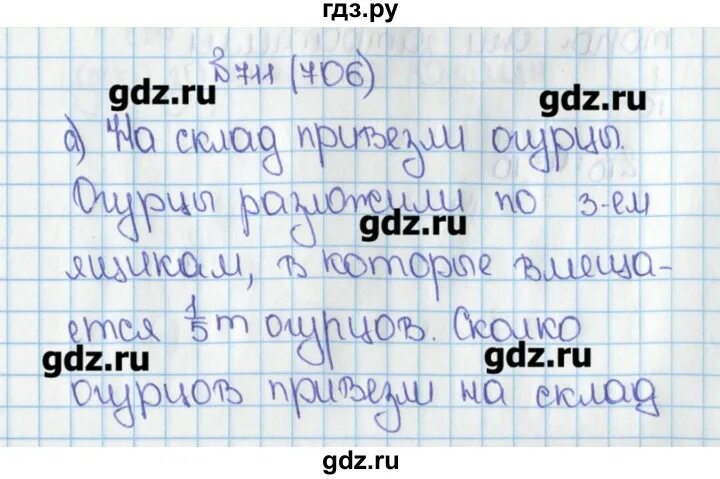 гдз.ру
№711 (706)
gdz.ru
gdz.ru
а) На склад привезли огурцы.
Огурцы разложили по 3-ем
gdz.ru
ящикам, в которые вмеща-
ется 1/5 т огурцов. Сколко
gdz.ru
gdz.ru
огурцов привезли на склад
gdz.ru